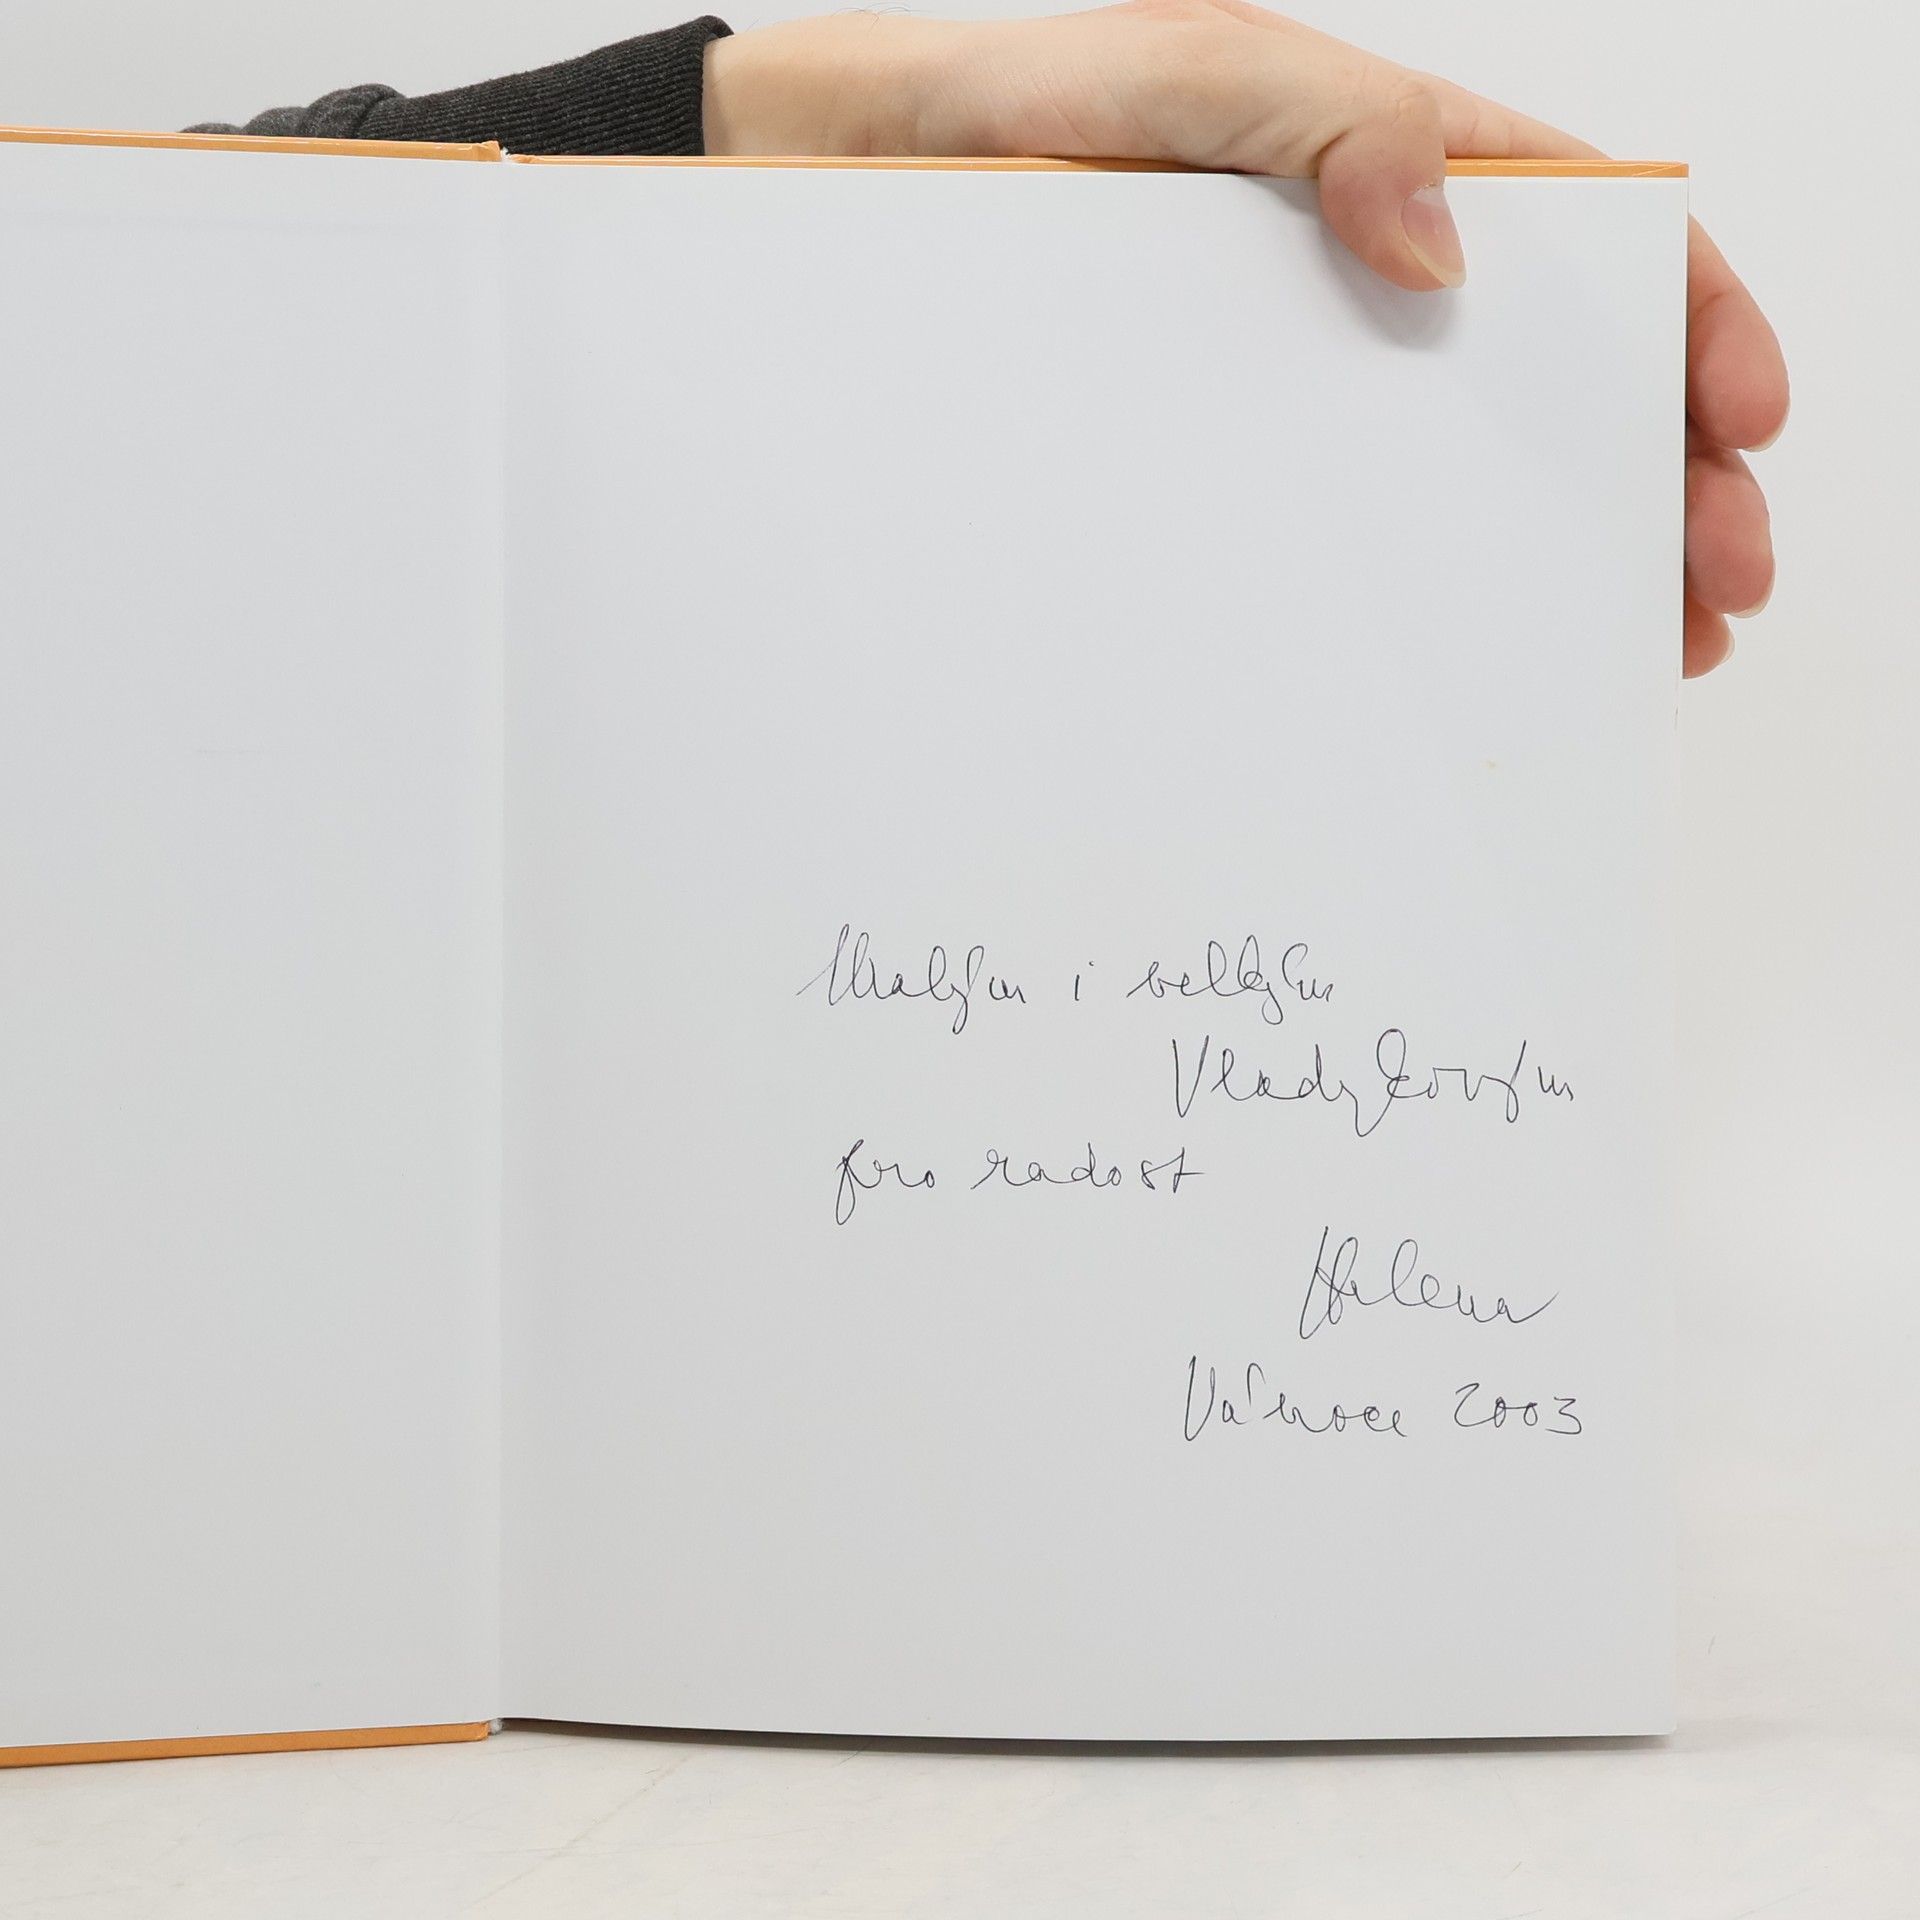 Malým i velkým
Vladykovým
pro radost
Helena
Vánoce 2003